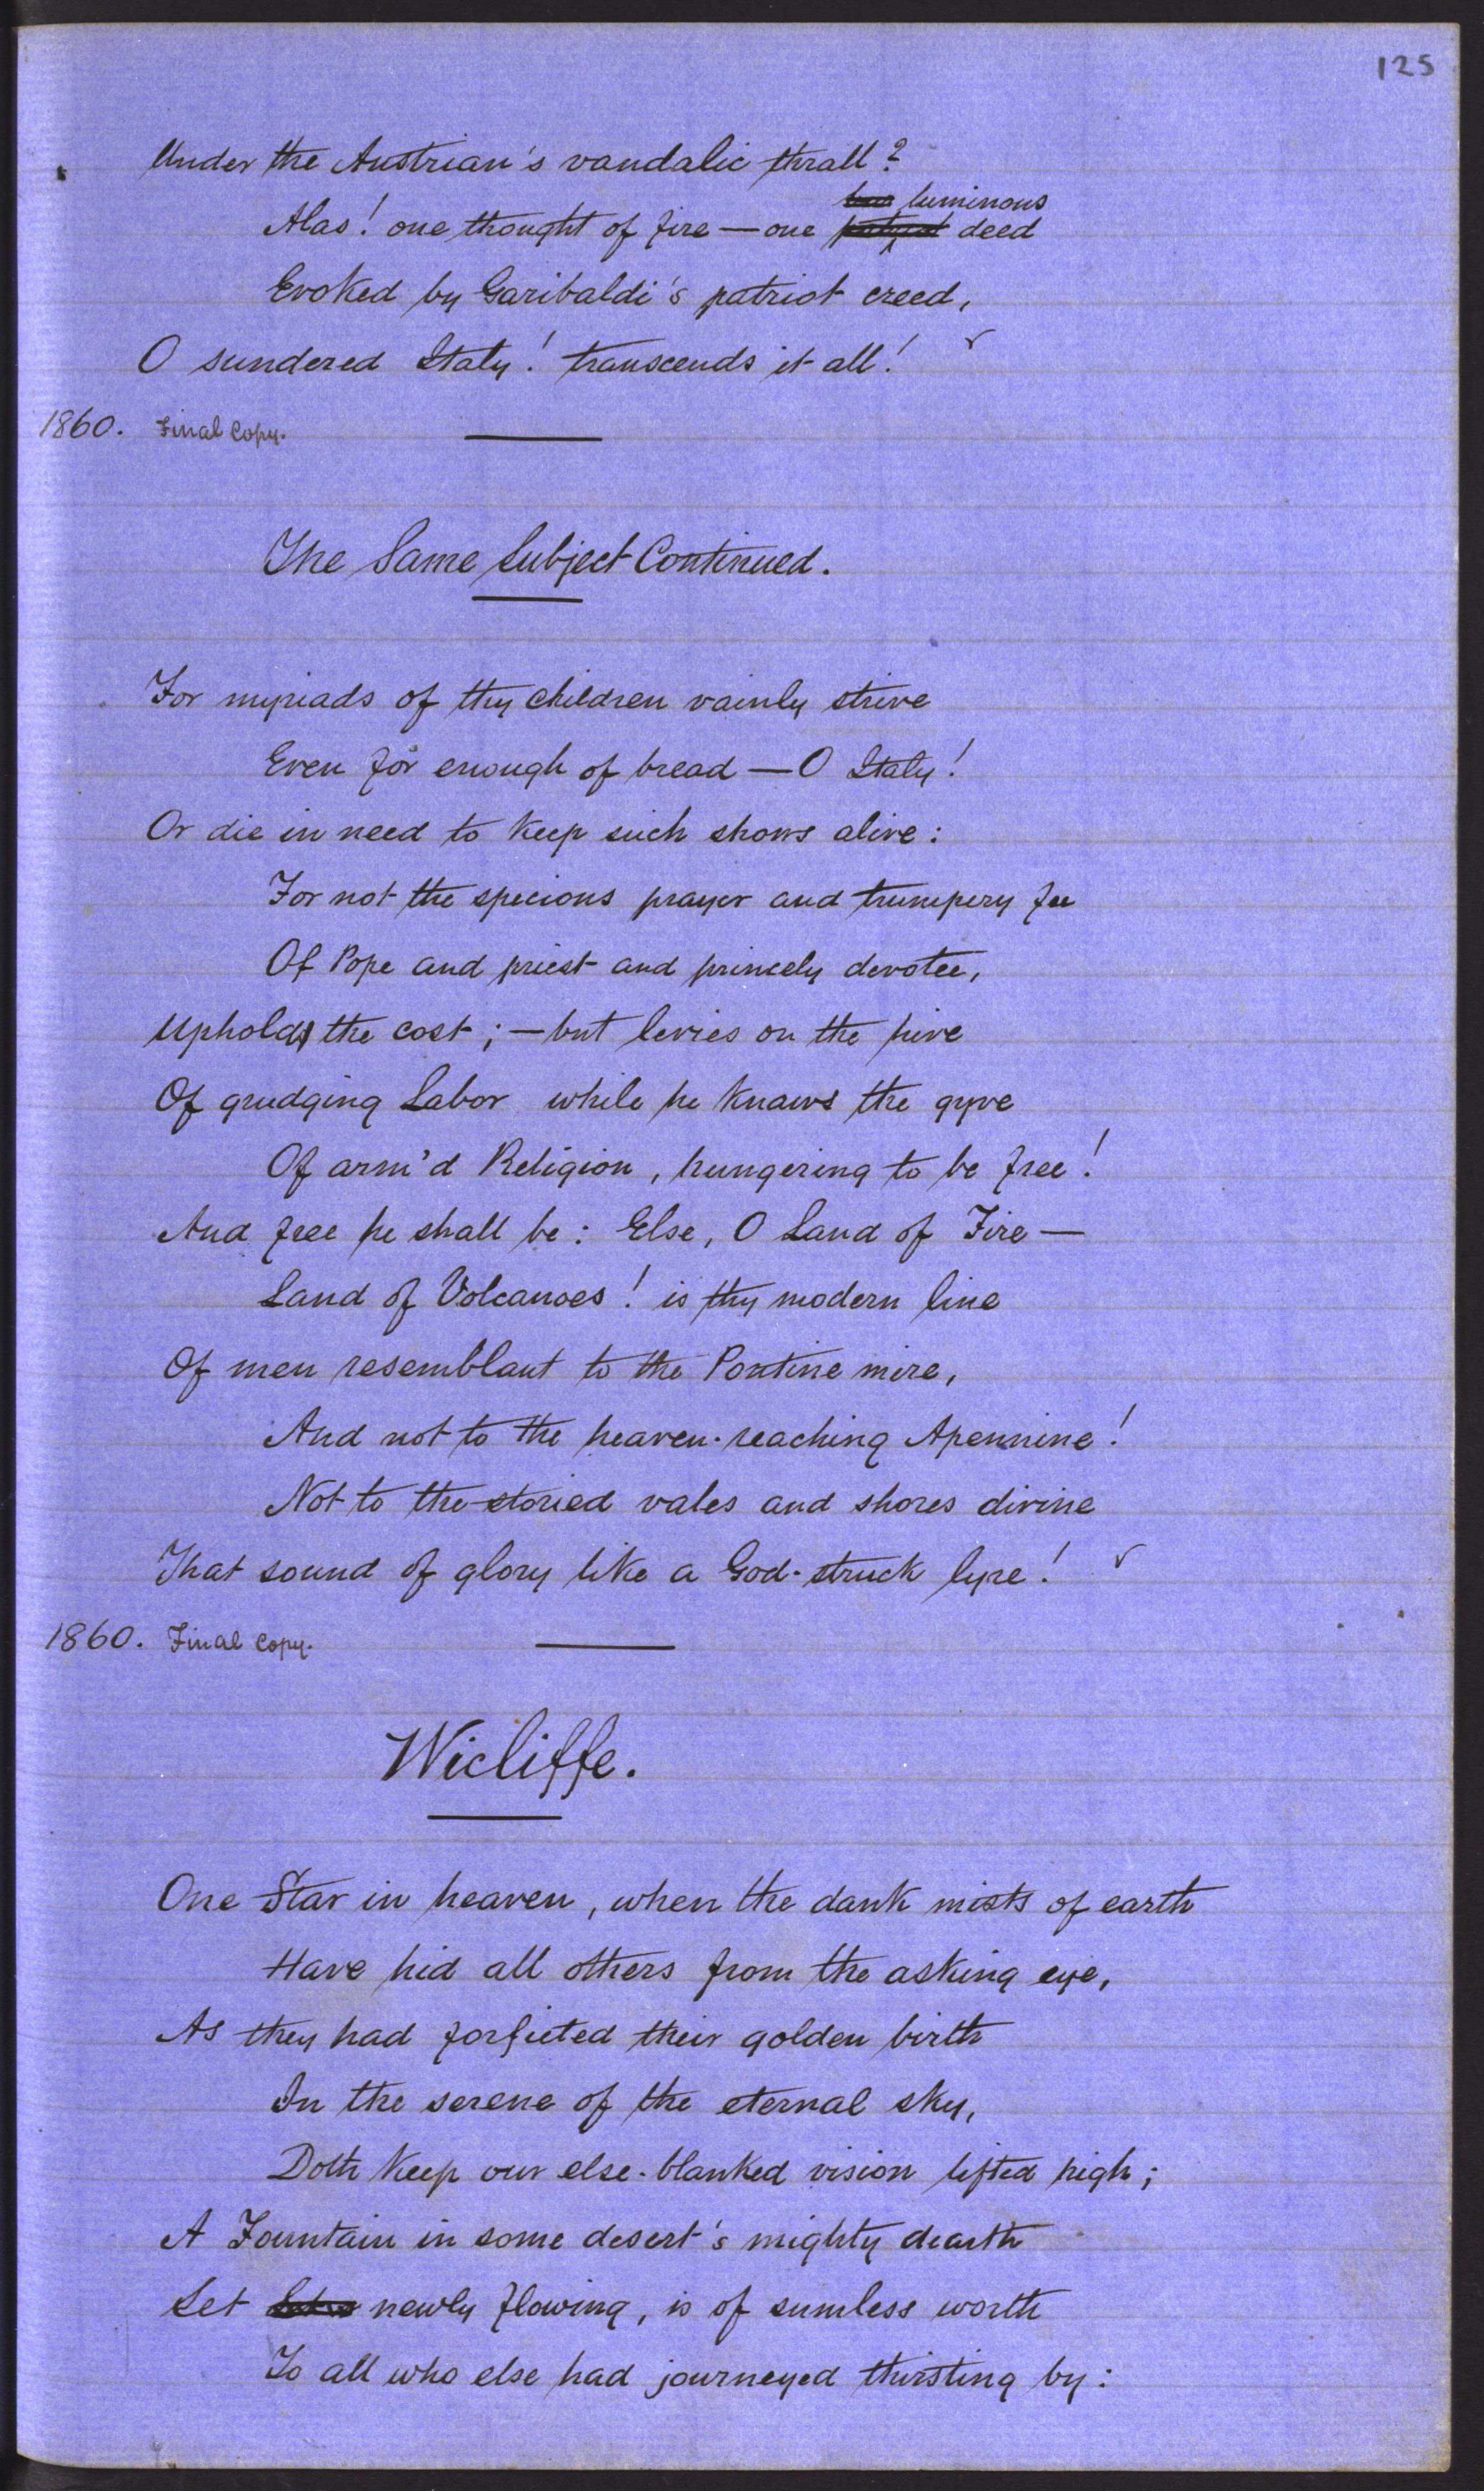 125
Under the Austrian's vandalic thrall?
luminous
Alas! one thought of fire — one deed
Evoked by Garibaldi's patriot creed,
O sundered Italy! transcends it all!
1860. Final Copy.
The Same Subject Continued.
For myriads of thy children vainly strive
Even for enough of bread — O Italy!
Or die in need to keep such shows alive:
For not the specious prayer and trumpery fee
Of Pope and priest and princely devotee,
Upholds the cost; — but levies on the hive
Of grudging Labor while he knaws the gyve
Of arm'd Religion, hungering to be free!
And free he shall be: Else, O Land of Fire —
Land of Volcanoes! is thy modern line
Of men resemblant to the Pontine mire,
And not to the heaven-reaching Apennine!
Not to the storied vales and shores divine
That sound of glory like a God-struck lyre!
1860. Final Copy.
Wicliffe.
One Star in heaven, when the dank mists of earth
Have hid all others from the asking eye,
As they had forfieted their golden birth
In the serene of the eternal sky,
Doth keep our else-blanked vision lifted high;
A Fountain in some desert's mighty dearth
Set newly flowing, is of sumless worth
To all who else had journeyed thirsting by: